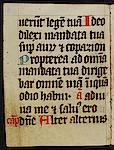 uerūt legē tuā Ideo
dilexi mandata tua
sup auꝝ & topazion
Propterea ad omnia
mandata tua dirige
bar omnē uiā iniqua
odio habui A adiu
ua me & saluꝰ ero
capdn̄e Alter alterius